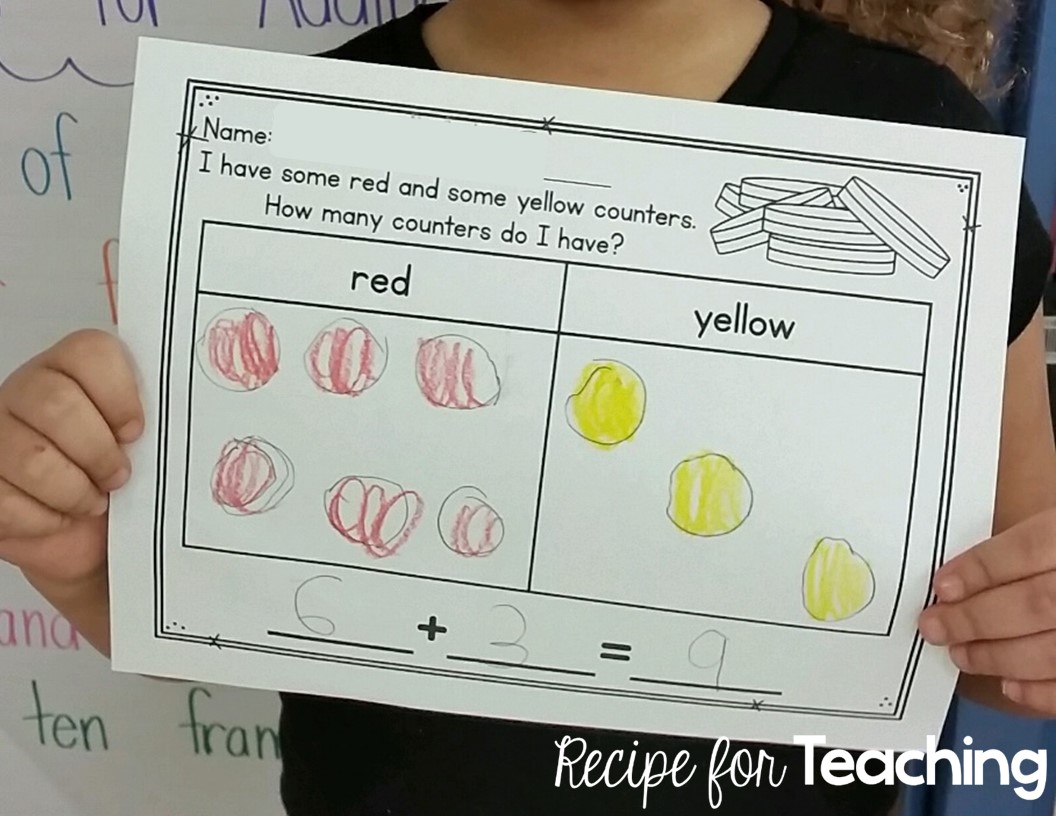 for Addin
of
and
ten fran
Name:
I have some red and some yellow counters.
How many counters do I have?
red
yellow
6 + 3 = 9
Recipe for Teaching